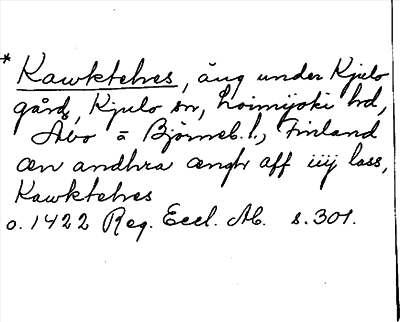 * Kawktelres, äng under Kjulo
gård, Kjulo sn, Loimijoki hd,
Åbo ä Björneb. l., Finland
æn andhra ængh aff iiij lass,
Kawktelres
o. 1422 Reg. Eccl. Ab. s. 301.